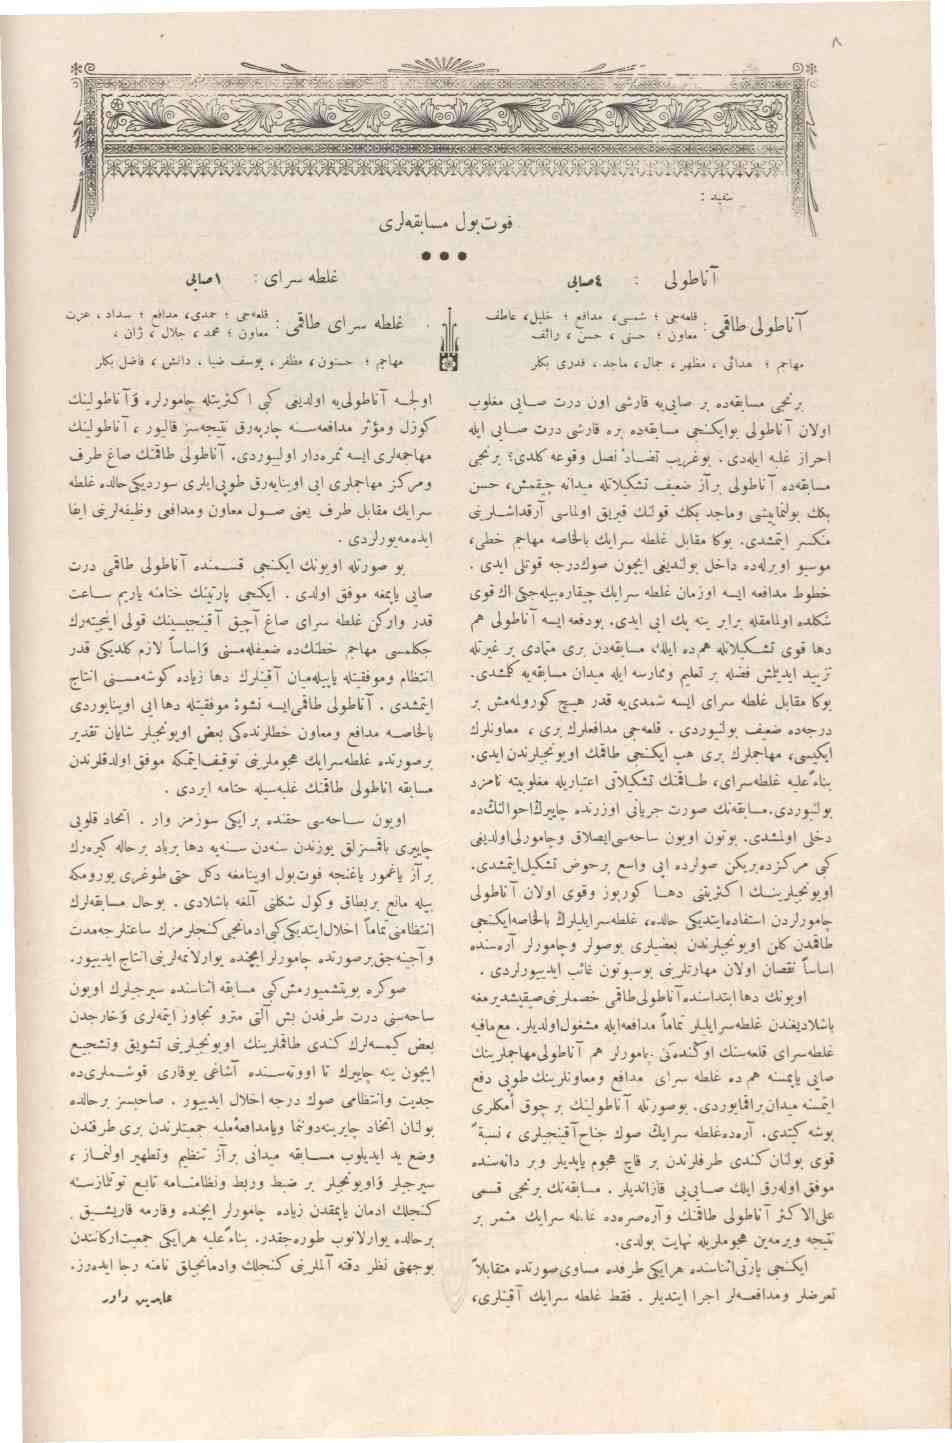 ٨
تنقيد :
فوت‌بول مسابقه‌لرى
آناطولى : ٤صايى
غلطه سراى : ١صايى
آناطولى طاقمى : قلعه‌جى ؛ شمسى، مدافع ؛ خليل، عاطف
معاون ؛ حسنى ، حسن ، رائف
مهاجم ؛ هدائى ، مظهر ، جمال ، ماجد ، قدرى بكلر
برنجى مسابقه‌ده بر صايى‌يه قارشى اون درت صايى مغلوب
اولان آناطولى بوايكنجى مسابقه‌ده بره قارشى درت صايى ايله
احراز غلبه ايله‌دى . بوغريب تضاد نصل وقوعه كلدى؟ برنجى
مسابقه‌ده آناطولى برآز ضعيف تشكيلاتله ميدانه چيقمش، حسن
بكك بولنمايشى وماجد بكك قولنك قيريق اولماسى آرقداشلرينى
منكسر ايتمشدى. بوكا مقابل غلطه سرايك بالخاصه مهاجم خطى،
موسيو اوبرله‌ده داخل بولنديغى ايچون صوك‌درجه قوتلى ايدى .
خطوط مدافعه ايسه اوزمان غلطه سرايك چيقاره‌بيله‌جكى اك قوى
شكلده اولمامقله برابر ينه پك ايى ايدى. بودفعه ايسه آناطولى هم
دها قوى تشكيلاتله هم‌ده ايلك مسابقه‌دن برى متمادى بر غيرتله
تزييد ايديلمش فضله بر تعليم وممارسه ايله ميدان مسابقه‌يه كلمشدى.
بوكا مقابل غلطه سراى ايسه شمدى‌يه قدر هيچ كورولمه‌مش بر
درجه‌ده ضعيف بولنيوردى . قلعه‌جى مدافعلرك برى ، معاونلرك
ايكيسى، مهاجملرك برى هپ ايكنجى طاقمك اويونجيلرندن ايدى.
بناءً عليه غلطه‌سراى، طاقمنك تشكيلاتى اعتباريله مغلوبيته نامزد
بولنيوردى. مسابقه‌نك صورت جريانى اوزرنده چايرك‌احوالنك‌ده
دخلى اولمشدى. بوتون اويون ساحه‌سى ايصلاق وچامورلى‌اولديغى
كبى مركزده‌بريكن صولرده ايى واسع برحوض تشكيل‌ايتمشدى.
اويونجيلرينك اكثريتنى دها كوربوز وقوى اولان آناطولى
چامورلردن استفاده‌ايتديكى حالده، غلطه‌سرايليلرك بالخاصه‌ايكنجى
طاقمدن كلن اويونجيلرندن بعضيلرى بوصولر وچامورلر آره‌سنده
اساساً نقصان اولان مهارتلرينى بوسبوتون غائب ايدييورلردى .
اويونك دها ابتداسنده آناطولى‌طاقمى خصملرينى‌صيقيشديرمغه
باشلاديغندن غلطه‌سرايليلر تماماً مدافعه‌ايله مشغول‌اولديلر. مع‌مافيه
غلطه‌سراى قلعه‌سنك اوكنده‌كى چامورلر هم آناطولى‌مهاجملرينك
صايى ياپمسنه هم ده غلطه سراى مدافع ومعاونلرينك طوپى دفع
ايتمسنه ميدان‌براقمايوردى. بوصورتله آناطولينك بر چوق امكلرى
بوشه كيتدى. آره‌ده‌غلطه سرايك صوك جناح‌آقينجيلرى ، نسبةً
قوى بولنان‌كندى طرفلرندن بر قاچ هجوم ياپديلر وبر دانه‌سنده
موفق اوله‌رق ايلك صايى‌يى قازانديلر . مسابقه‌نك برنجى قسمى
على‌الاكثر آناطولى طاقمنك وآره‌صره‌ده غلطه سرايك مثمر بر
نتيجه ويرمه‌ين هجوملريله نهايت بولدى.
ايكنجى پارتى‌اثناسنده هرايكى‌طرفده مساوى‌صورتده متقابلاً
تعرضلر ومدافعه‌لر اجرا ايتديلر . فقط غلطه سرايك آقينلرى،
غلطه سراى طاقمى : قلعه‌جى ؛ حمدى، مدافع ؛ سداد ، عزت
معاون ؛ محمد ، جلال ، ژان ،
مهاجم ؛ حسنون، مظفر ، يوسف ضيا ، دانش ، فاضل بكلر
اولجه آناطولى‌يه اولديغى كبى اكثريتله چامورلره وآناطولينك
كوزل ومؤثر مدافعه‌سنه چارپه‌رق نتيجه‌سز قاليور ، آناطولينك
مهاجمه‌لرى ايسه ثمره‌دار اوليوردى. آناطولى طاقمنك صاغ طرف
ومركز مهاجملرى ايى اوينايه‌رق طوپى‌ايلرى سورديكى‌حالده غلطه
سرايك مقابل طرف يعنى صول معاون ومدافعى وظيفه‌لرينى ايفا
ايده‌مه‌يورلردى .
بو صورتله اويونك ايكنجى قسمنده آناطولى طاقمى درت
صايى ياپمغه موفق اولدى . ايكنجى پارتينك ختامنه ياريم ساعت
قدر واركن غلطه سراى صاغ آچيق آقينجيسينك قولى اينجيته‌رك
چكلمسى مهاجم خطنك‌ده ضعيفله‌مسنى واساساً لازم كلديكى قدر
انتظام وموفقيتله ياپيله‌ميان آقينلرك دها زياده كوشه‌مسنى انتاج
ايتمشدى . آناطولى طاقمى‌ايسه نشوۀ موفقيتله دها ايى اوينايوردى
بالخاصه مدافع ومعاون خطلرنده‌كى بعض اويونجيلر شايان تقدير
برصورتده غلطه‌سرايك هجوملرينى توقيف‌ايتمكه موفق اولدقلرندن
مسابقه اناطولى طاقمنك غلبه‌سيله ختامه ايردى .
اويون ساحه‌سى حقنده برايكى سوزمز وار . اتحاد قلوبى
چايرى باقمسزلق يوزندن سنه‌دن سنه‌يه دها برباد برحاله كيره‌رك
برآز ياغمور ياغنجه فوت‌بول اوينامغه دكل حتى طوغرى يورومكه
بيله مانع بربطاق وكول شكلنى آلمغه باشلادى . بوحال مسابقه‌لرك
انتظامنى تماماً اخلال‌ايتديكى‌كبى‌ادمانجى‌كنجلرمزك ساعتلرجه‌مدت
وآجينه‌جق‌برصورتده چامورلر ايچنده يوارلانمه‌لرينى انتاج ايدييور.
صوكره بويتشميورمش‌كبى مسابقه اثناسنده سيرجيلرك اويون
ساحه‌سنى درت طرفدن بش آلتى مترو تجاوز ايتمه‌لرى وخارجدن
بعض كيمسه‌لرك كندى طاقملرينك اويونجيلرينى تشويق وتشجيع
ايچون ينه چايرك تا اوته‌سنده آشاغى يوقارى قوشملرى‌ده
جديت وانتظامى صوك درجه اخلال ايدييور . صاحبسز برحالده
بولنان اتحاد چايرينه‌دونما ويامدافعۀمليه جمعيتلرندن برى طرفندن
وضع يد ايديلوب مسابقه ميدانى برآز تنظيم وتطهير اولنماز ،
سيرجيلر واويونجيلر بر ضبط وربط ونظامنامه تابع توتلمازسه
كنجلك ادمان ياپمقدن زياده چامورلر ايچنده وقارمه قاريشيق
برحالده يوارلانوب طوره‌جقدر. بناءً عليه هرايكى جمعيت‌اركانندن
بوجهتى نظر دقته آلملرينى كنجلك وادمانجيلق نامنه رجا ايده‌رز.
عابدين داور